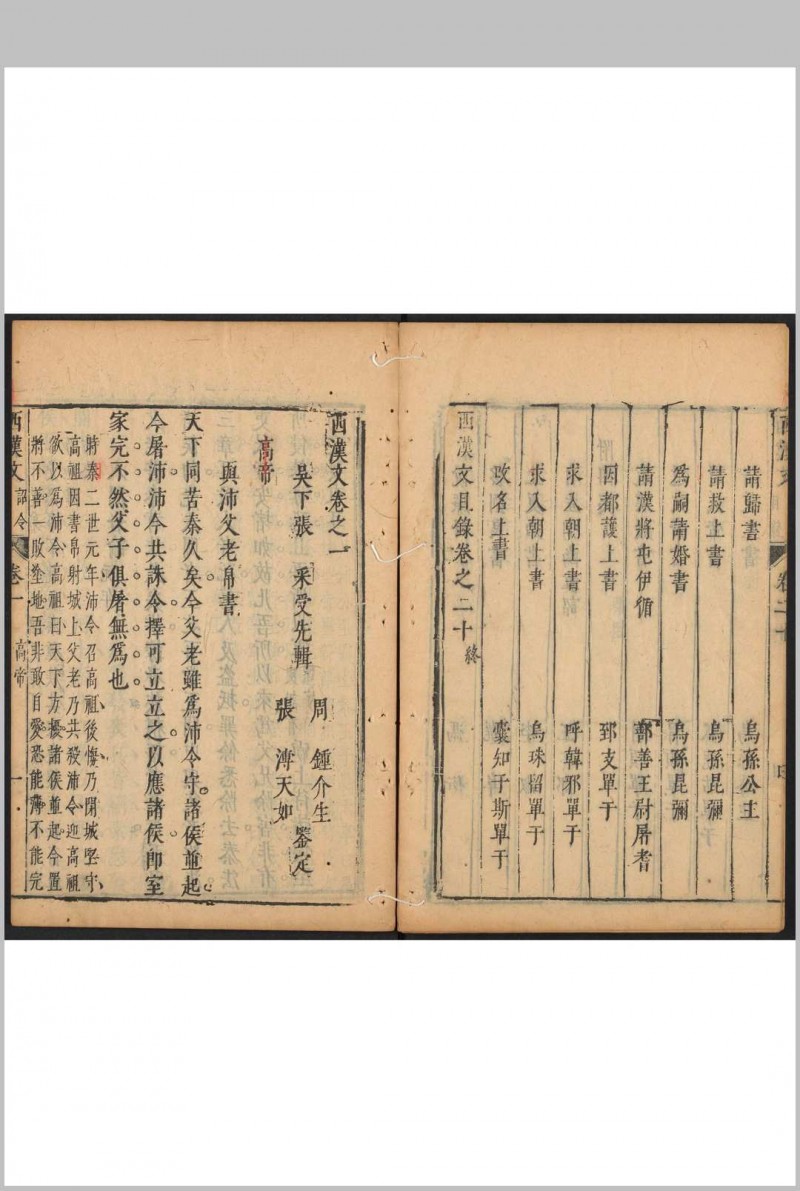 請歸書　烏孫公主
請救上書　烏孫昆彌
為嗣請婚書　烏孫昆彌
請漢將屯伊循　鄯善王尉屠耆
因都護上書　郅支單于
求入朝上書　呼韓邪單于
求入朝上書　烏珠留單于
改名上書　囊知牙斯單于
西漢文目錄卷之二十終
西漢文卷之一
吳下張　采受先輯　周　鍾介生
張　溥天如　鑒定
高帝
與沛父老帛書
天下同苦秦久矣今父老雖爲沛令守諸侯並起
今屠沛沛今共誅令擇可立立之以應諸侯即室
家完不然父子俱屠無爲也
時秦二世元年沛令召高祖後悔乃閉城堅守
高祖因書帛射城上父老乃共殺沛令迎高祖
欲以爲沛令高祖曰天下方擾諸侯並起今置
將不善一敗塗地吾非敢自愛恐能薄不能完
西漢文　詔令　卷一　高帝　一